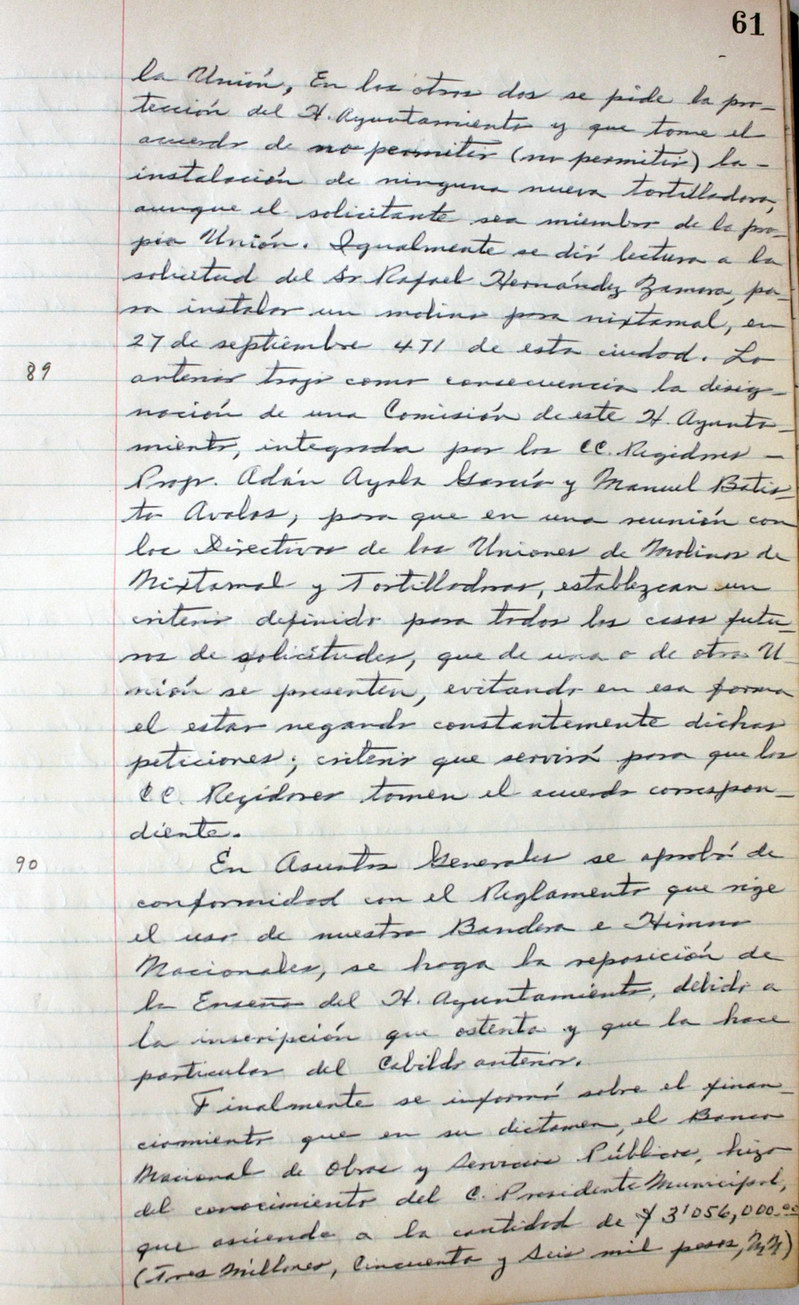 61
la Unión, En los otros dos se pide la pro-
tección del H. Ayuntamiento y que tome el
acuerdo de no permitir (no permitir) la-
instalación de ninguna nueva tortilladora,
aunque el solicitante sea miembro de la pro-
pia Unión. Igualmente se dió lectura a la
solicitud del Sr Rafael Hernández Zamora, pa-
ra instalar un molino para nixtamal, en
27 de septiembre 471 de esta ciudad. Lo
89
anterior trajo como consecuencia la desig-
nación de una Comisión de este H. Ayunta-
miento, integrada por los CC. Regidores -
Profr. Adán Ayala García y Manuel Batis-
ta Avalos, para que en una reunión con
los Directivos de las Uniones de Molinos de
Nixtamal y Tortilladoras, establezcan un
criterio definido para todos los casos futu-
ros de solicitudes, que de una o de otra U-
nión se presenten, evitando en esa forma
el estar negando constantemente dichas
peticiones; criterio que servirá para que los
CC. Regidores tomen el acuerdo correspon-
diente.
90
En Asuntos Generales se aprobó de
conformidad con el Reglamento que rige
el uso de nuestra Bandera e Himno
Nacionales, se haga la reposición de
la Enseña del H. Ayuntamiento, debido a
la inscripción que ostenta y que la hace
particular del Cabildo anterior.
Finalmente se informó sobre el finan-
ciamiento que en su dictamen, el Banco
Nacional de Obras y Servicios Públicos, hizo
del conocimiento del C. Presidente Municipal,
que asciende a la cantidad de $ 3'056,000.00
(Tres Millones, Cincuenta y Seis mil pesos, M/N)